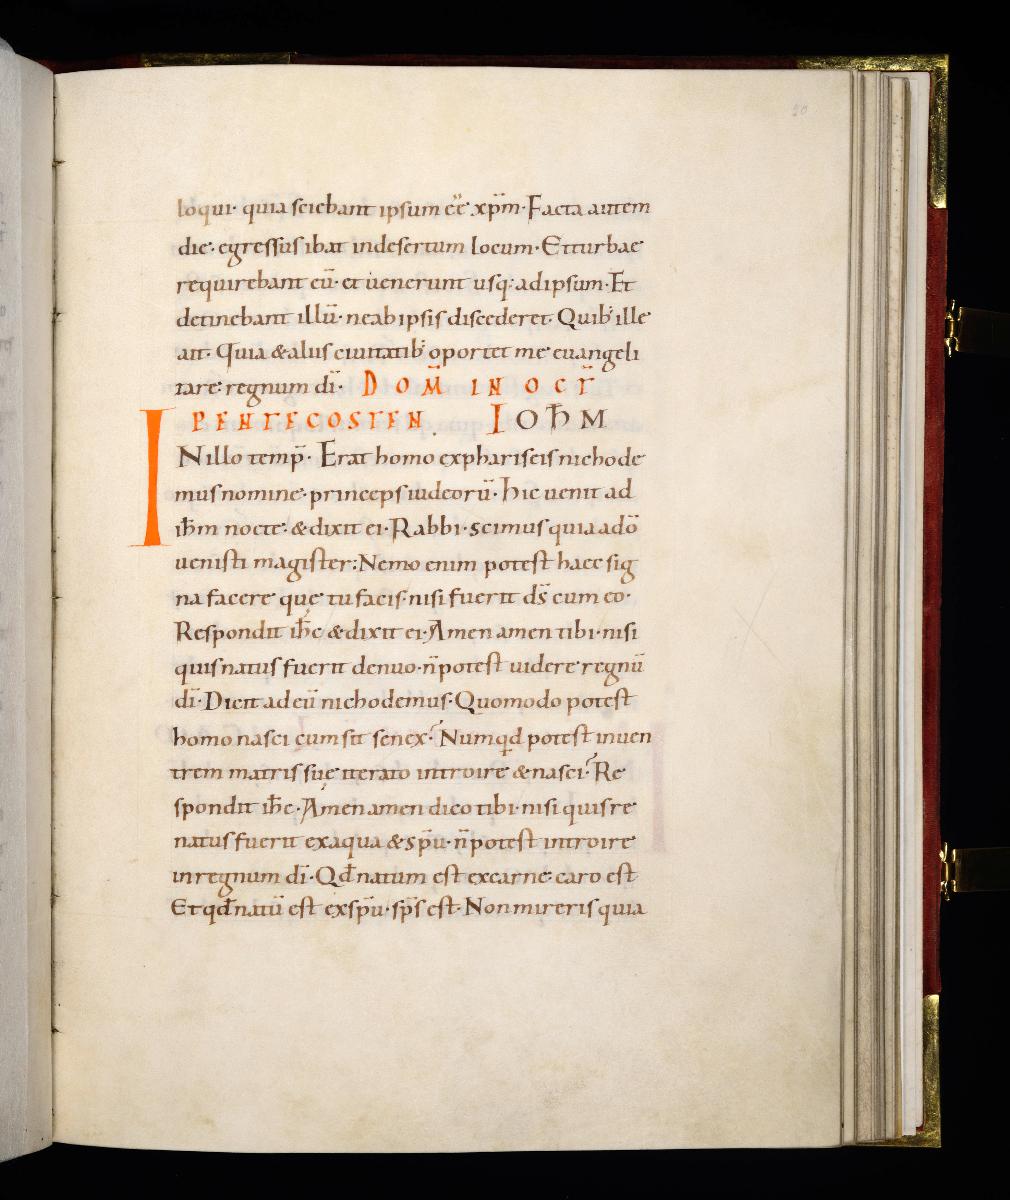 20
loqui· quia sciebant ipsum eē xp̄m· Facta autem
die· egressus ibat in desertum locum· Et turbae
requirebant eū· et uenerunt usq; ad ipsum· Et
detinebant illū· ne ab ipsis discederet· Quib; ille
ait· Quia & aliis ciuitatib; oportet me euangeli
zare regnum dī· DOM̄ IN OCT̄
PENTECOSTEN. IOHM
IN illo temp̄· Erat homo ex phariseis nichode
mus nomine· princeps iudeorū· Hic uenit ad
ih̄m nocte· & dixit ei· Rabbi· scimus quia a dō
uenisti magister; Nemo enim potest haec sig
na facere quę tu facis· nisi fuerit ds̄ cum eo·
Respondit ih̄c & dixit ei· Amen amen tibi· nisi
quis natus fuerit denuo· n̄ potest uidere regnū
dī· Dicit ad eū nichodemus· Quomodo potest
homo nasci cum sit senex? Numqđ potest in uen
trem matris suę iterato introire & nasci? Re
spondit ih̄c· Amen amen dico tibi· nisi quis re
natus fuerit ex aqua & sp̄u· n̄ potest introire
in regnum dī· Qđ natum est ex carne· caro est
Et qđ natū est ex sp̄u· sp̄s est· Non mireris quia